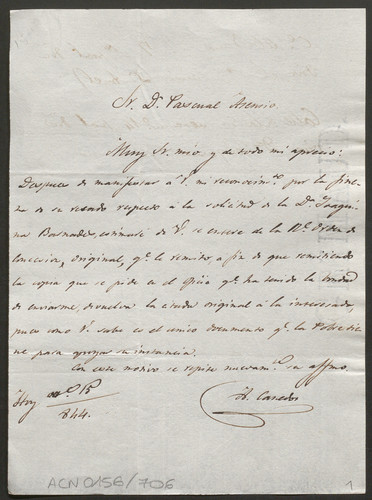 Sr. Dn. Pascual Asensio
Muy Sr. mio y de todo mi aprecio:
Despues de manifestar a V. mi reconocimto. por la fine-
za de su recado respecto a la solicitud de la Da. Joaqui-
na Barnades, estimaré de V. se entere de la Rl. Orden de
concesion, original, qe. le remito, a fin de que remitiendo
la copia que se pide en el oficio qe. ha tenido la bondad
de enviarme, devuelva la citada original à la interesada,
pues como V. sabe es el unico documento qe. la Pobre tie-
ne para apoyar su instancia.
Con este motivo se repite nuevamte. su affmo.
Hoy 15
844.
Canedo
ACN0156/706
1